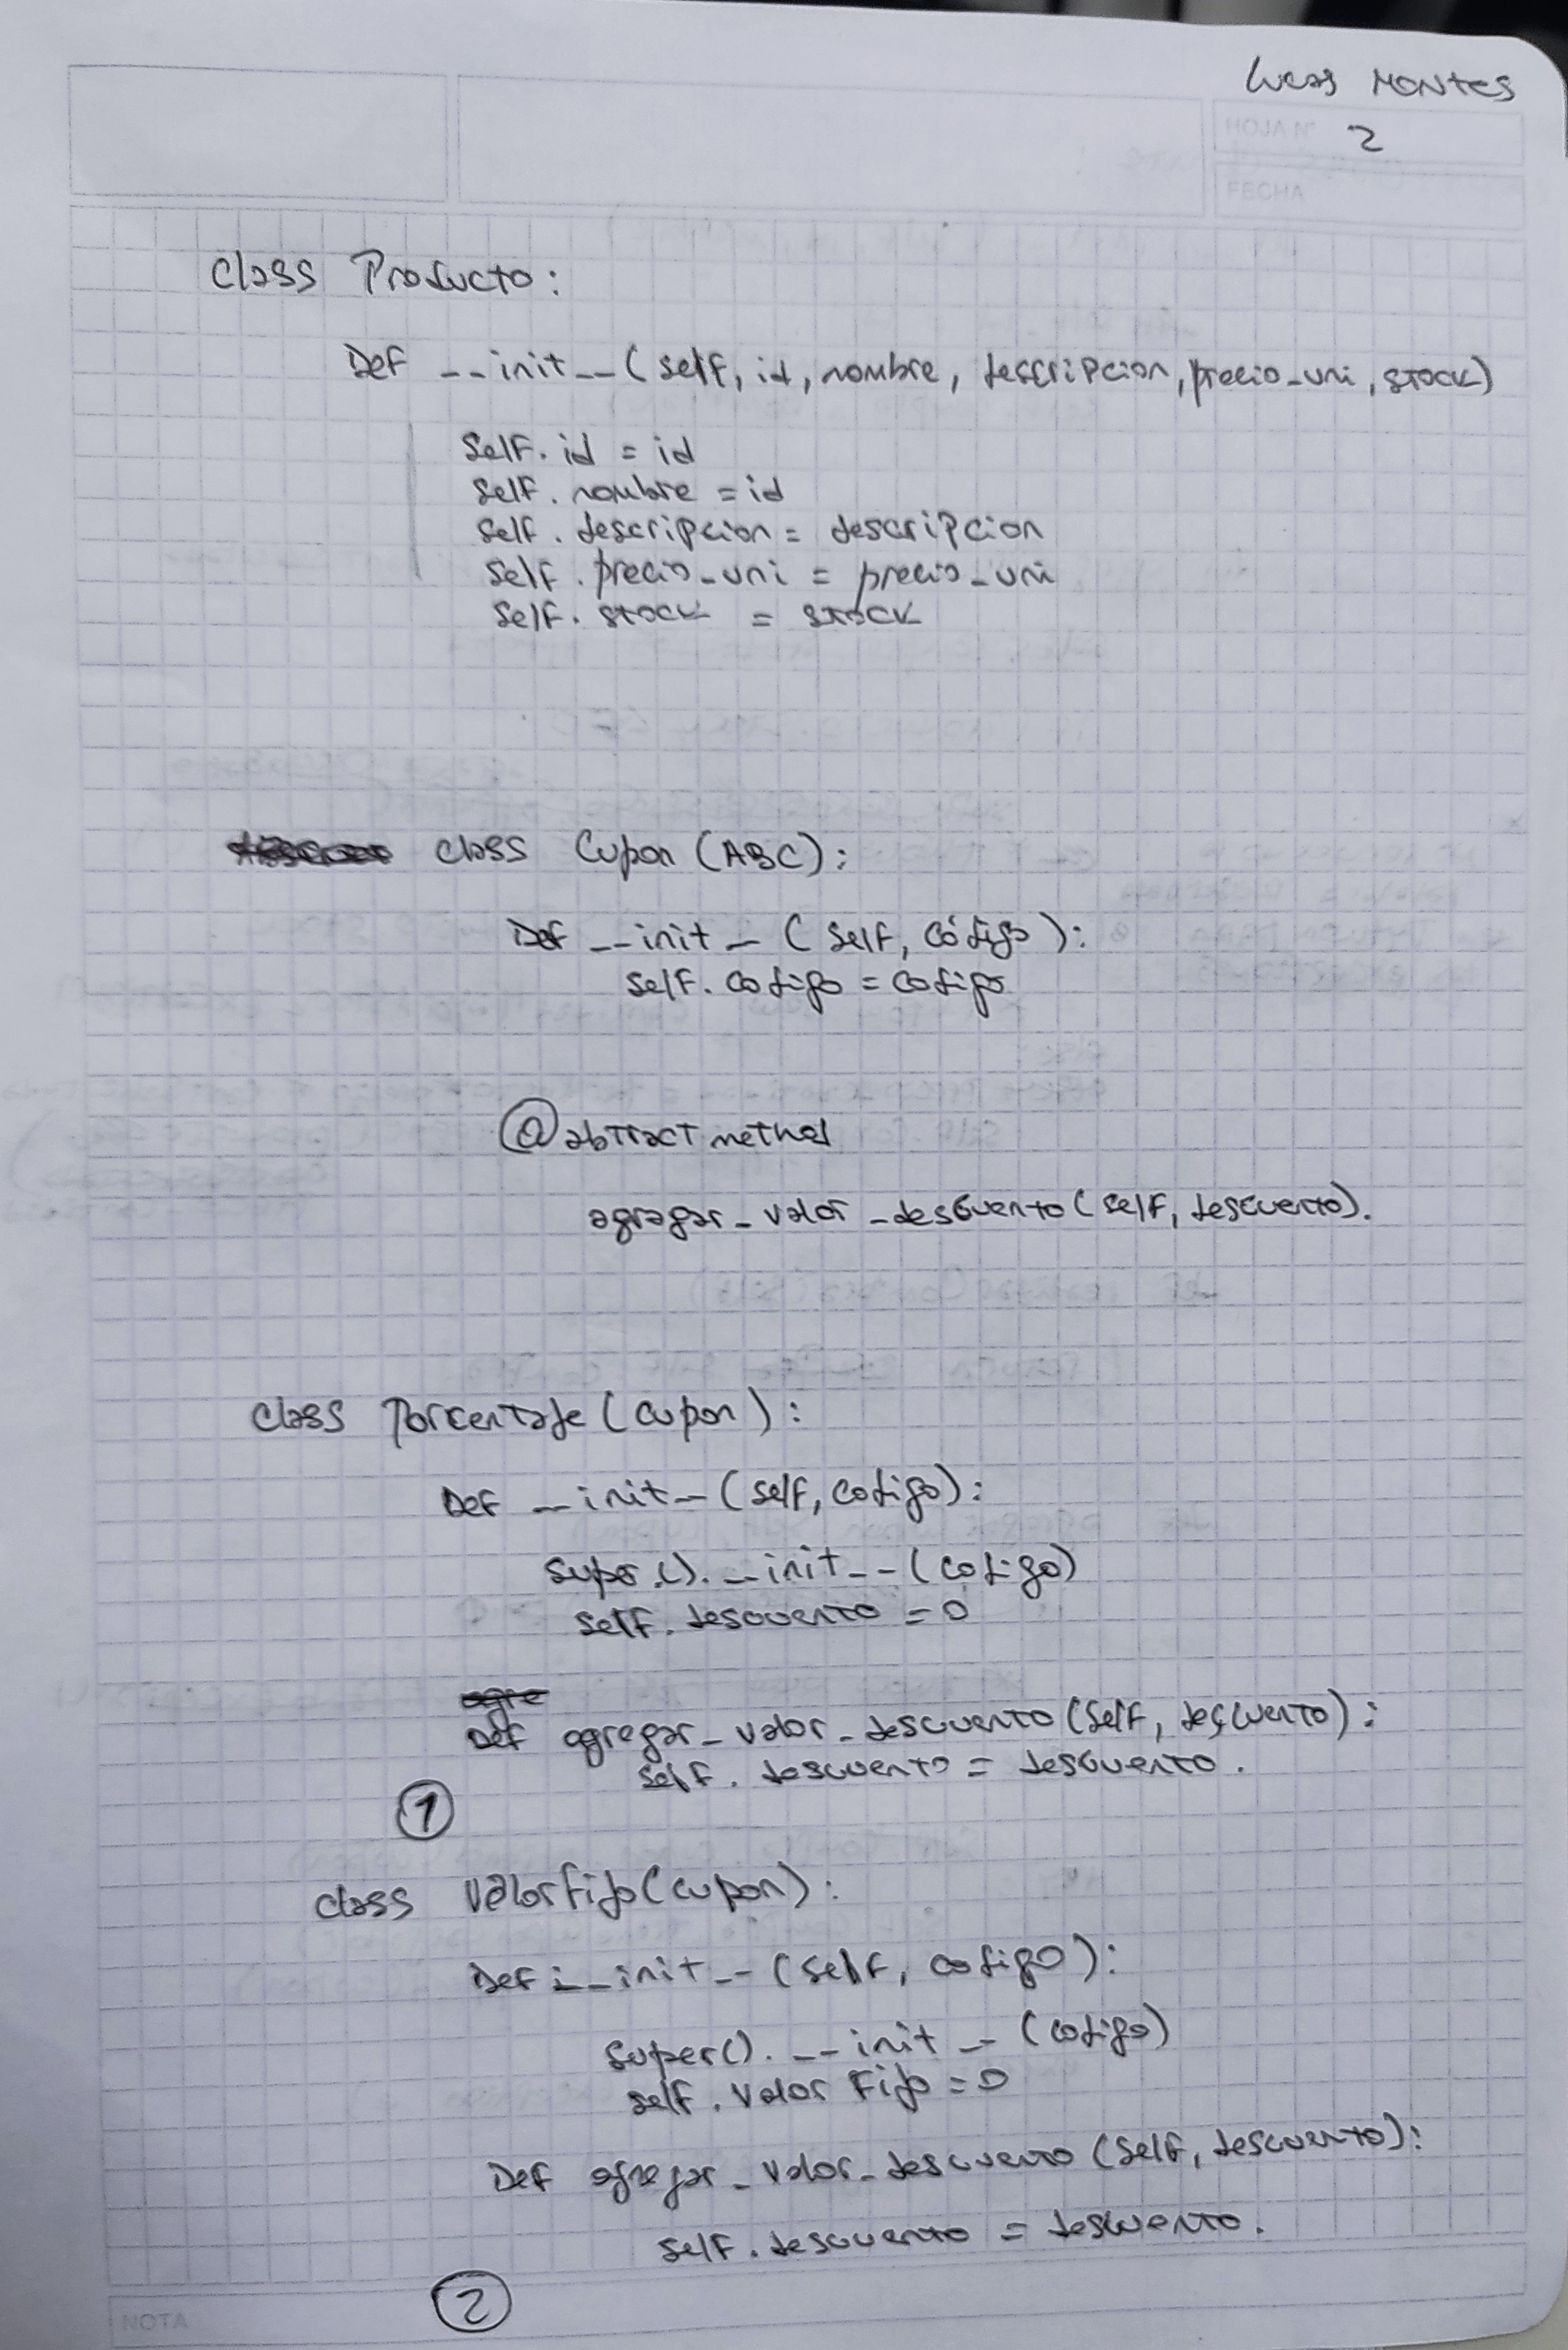 Lucas Montes
HOJA N° 2
FECHA
Class Producto:
Def __init__(self, id, nombre, descripcion, precio_uni, stock)
self.id = id
self.nombre = id
self.descripcion = descripcion
self.precio_uni = precio_uni
self.stock = stock
class Cupon (ABC):
Def __init__ (self, código):
self.codigo = codigo
@abtractmethod
agregar_valor_descuento(self, descuento).
class Porcentaje (cupon):
Def __init__ (self, codigo):
super.().__init__(codigo)
self.descuento = 0
agre
Def agregar_valor_descuento(self, descuento):
self.descuento = descuento.
1
class ValorFijo(cupon):
Def __init__ (self, codigo):
super().__init__ (codigo)
self.valor Fijo = 0
Def agregar_valor_descuento (self, descuento):
self.descuento = descuento.
2
NOTA